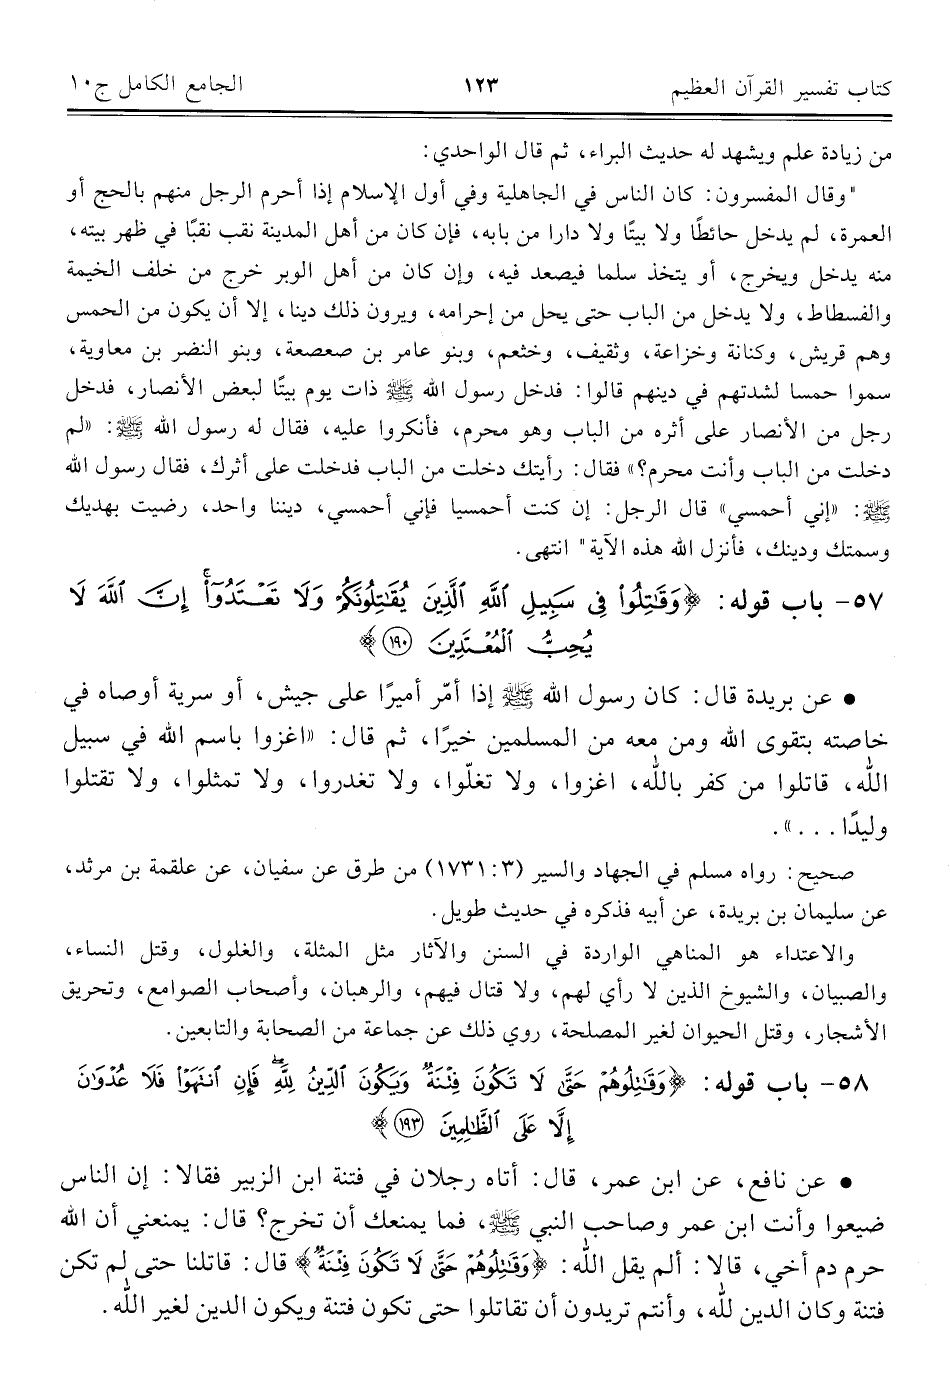 كتاب تفسير القرآن العظيم ١٢٣ الجامع الكامل ج١٠
من زيادة علم ويشهد له حديث البراء، ثم قال الواحدي:
"وقال المفسرون: كان الناس في الجاهلية وفي أول الإسلام إذا أحرم الرجل منهم بالحج أو
العمرة، لم يدخل حائطًا ولا بيتًا ولا دارا من بابه، فإن كان من أهل المدينة نقب نقبًا في ظهر بيته،
منه يدخل ويخرج، أو يتخذ سلما فيصعد فيه، وإن كان من أهل الوبر خرج من خلف الخيمة
والفسطاط، ولا يدخل من الباب حتى يحل من إحرامه، ويرون ذلك دينا، إلا أن يكون من الحمس
وهم قريش، وكنانة وخزاعة، وثقيف، وخثعم، وبنو عامر بن صعصعة، وبنو النضر بن معاوية،
سموا حمسا لشدتهم في دينهم قالوا: فدخل رسول الله ﷺ ذات يوم بيتًا لبعض الأنصار، فدخل
رجل من الأنصار على أثره من الباب وهو محرم، فأنكروا عليه، فقال له رسول الله ﷺ: «لم
دخلت من الباب وأنت محرم؟» فقال: رأيتك دخلت من الباب فدخلت على أثرك، فقال رسول الله
ﷺ: «إني أحمسي» قال الرجل: إن كنت أحمسيا فإني أحمسي، ديننا واحد، رضيت بهديك
وسمتك ودينك، فأنزل الله هذه الآية" انتهى.
٥٧- باب قوله: ﴿وَقَٰتِلُواْ فِي سَبِيلِ ٱللَّهِ ٱلَّذِينَ يُقَٰتِلُونَكُمۡ وَلَا تَعۡتَدُوٓاْۚ إِنَّ ٱللَّهَ لَا
يُحِبُّ ٱلۡمُعۡتَدِينَ ١٩٠﴾
• عن بريدة قال: كان رسول الله ﷺ إذا أمّر أميرًا على جيش، أو سرية أوصاه في
خاصته بتقوى الله ومن معه من المسلمين خيرًا، ثم قال: «اغزوا باسم الله في سبيل
الله، قاتلوا من كفر بالله، اغزوا، ولا تغلّوا، ولا تغدروا، ولا تمثلوا، ولا تقتلوا
وليدًا...».
صحيح: رواه مسلم في الجهاد والسير (١٧٣١:٣) من طرق عن سفيان، عن علقمة بن مرثد،
عن سليمان بن بريدة، عن أبيه فذكره في حديث طويل.
والاعتداء هو المناهي الواردة في السنن والآثار مثل المثلة، والغلول، وقتل النساء،
والصبيان، والشيوخ الذين لا رأي لهم، ولا قتال فيهم، والرهبان، وأصحاب الصوامع، وتحريق
الأشجار، وقتل الحيوان لغير المصلحة، روي ذلك عن جماعة من الصحابة والتابعين.
٥٨- باب قوله: ﴿وَقَٰتِلُوهُمۡ حَتَّىٰ لَا تَكُونَ فِتۡنَةٞ وَيَكُونَ ٱلدِّينُ لِلَّهِۖ فَإِنِ ٱنتَهَوۡاْ فَلَا عُدۡوَٰنَ
إِلَّا عَلَى ٱلظَّٰلِمِينَ ١٩٣﴾
• عن نافع، عن ابن عمر، قال: أتاه رجلان في فتنة ابن الزبير فقالا: إن الناس
ضيعوا وأنت ابن عمر وصاحب النبي ﷺ، فما يمنعك أن تخرج؟ قال: يمنعني أن الله
حرم دم أخي، قالا: ألم يقل الله: ﴿وَقَٰتِلُوهُمۡ حَتَّىٰ لَا تَكُونَ فِتۡنَةٞ﴾ قال: قاتلنا حتى لم تكن
فتنة وكان الدين لله، وأنتم تريدون أن تقاتلوا حتى تكون فتنة ويكون الدين لغير الله.